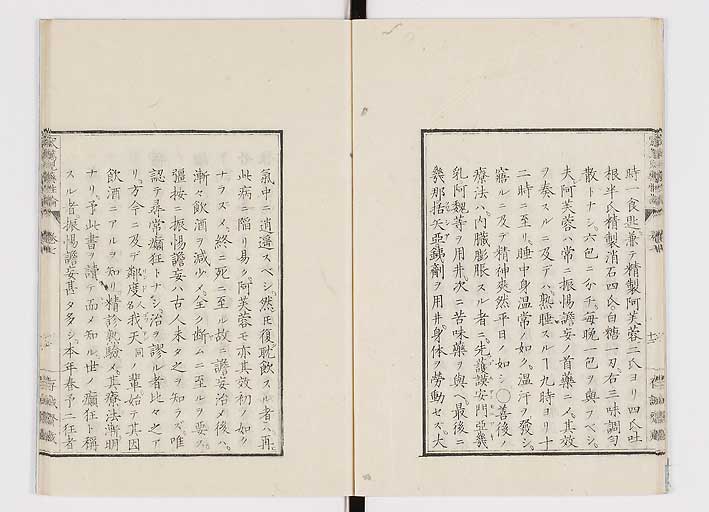 時一食匙兼テ精製阿芙蓉二氏ヨリ四氏吐
根半氏精製消石四氏白糖一刃右三味調勻
散トナシ六包ニ分チ毎晩一包ヲ與フベシ
夫阿芙蓉ハ常ニ振惕譫妄ノ首藥ニメ其效
ヲ奏スルニ及デハ熟睡スルヿ九時ヨリ十
二時ニ至リ睡中身温常ノ如ク温汗ヲ發シ
寤ルニ及デ精神爽然平日ノ如シ○善後ノ
療法ハ内臓膨脹スル者ニ先護謨安門亞幾
乳阿魏等ヲ用井次ニ苦味藥ヲ與ヘ最後ニ
幾那括矢亞銕劑ヲ用井身体ヲ勞動セズ大
氣中ニ逍遥スベシ然𪜈復耽飲スル者ハ再
此病ニ陥リ易ク阿芙蓉モ亦其效初ノ如ク
ナラズメ終ニ死ニ至ル故ニ譫妄治メ後ハ
漸々飲酒ヲ減少メ全ク断ムニ至ルヲ要ス
彊按ニ振惕譫妄ハ古人未タ之ヲ知ラズ唯
認テ尋常癲狂トナシ治ヲ謬ル者比々之ア
リ方今ニ及デ 我天同一軰始テ其因
飲酒ニアルヲ知リ精診熟驗メ其療法漸明
ナリ予此書ヲ讀テ而知ル世ノ癲狂ト稱
スル者振惕譫妄甚タ多シ本年春予二狂者